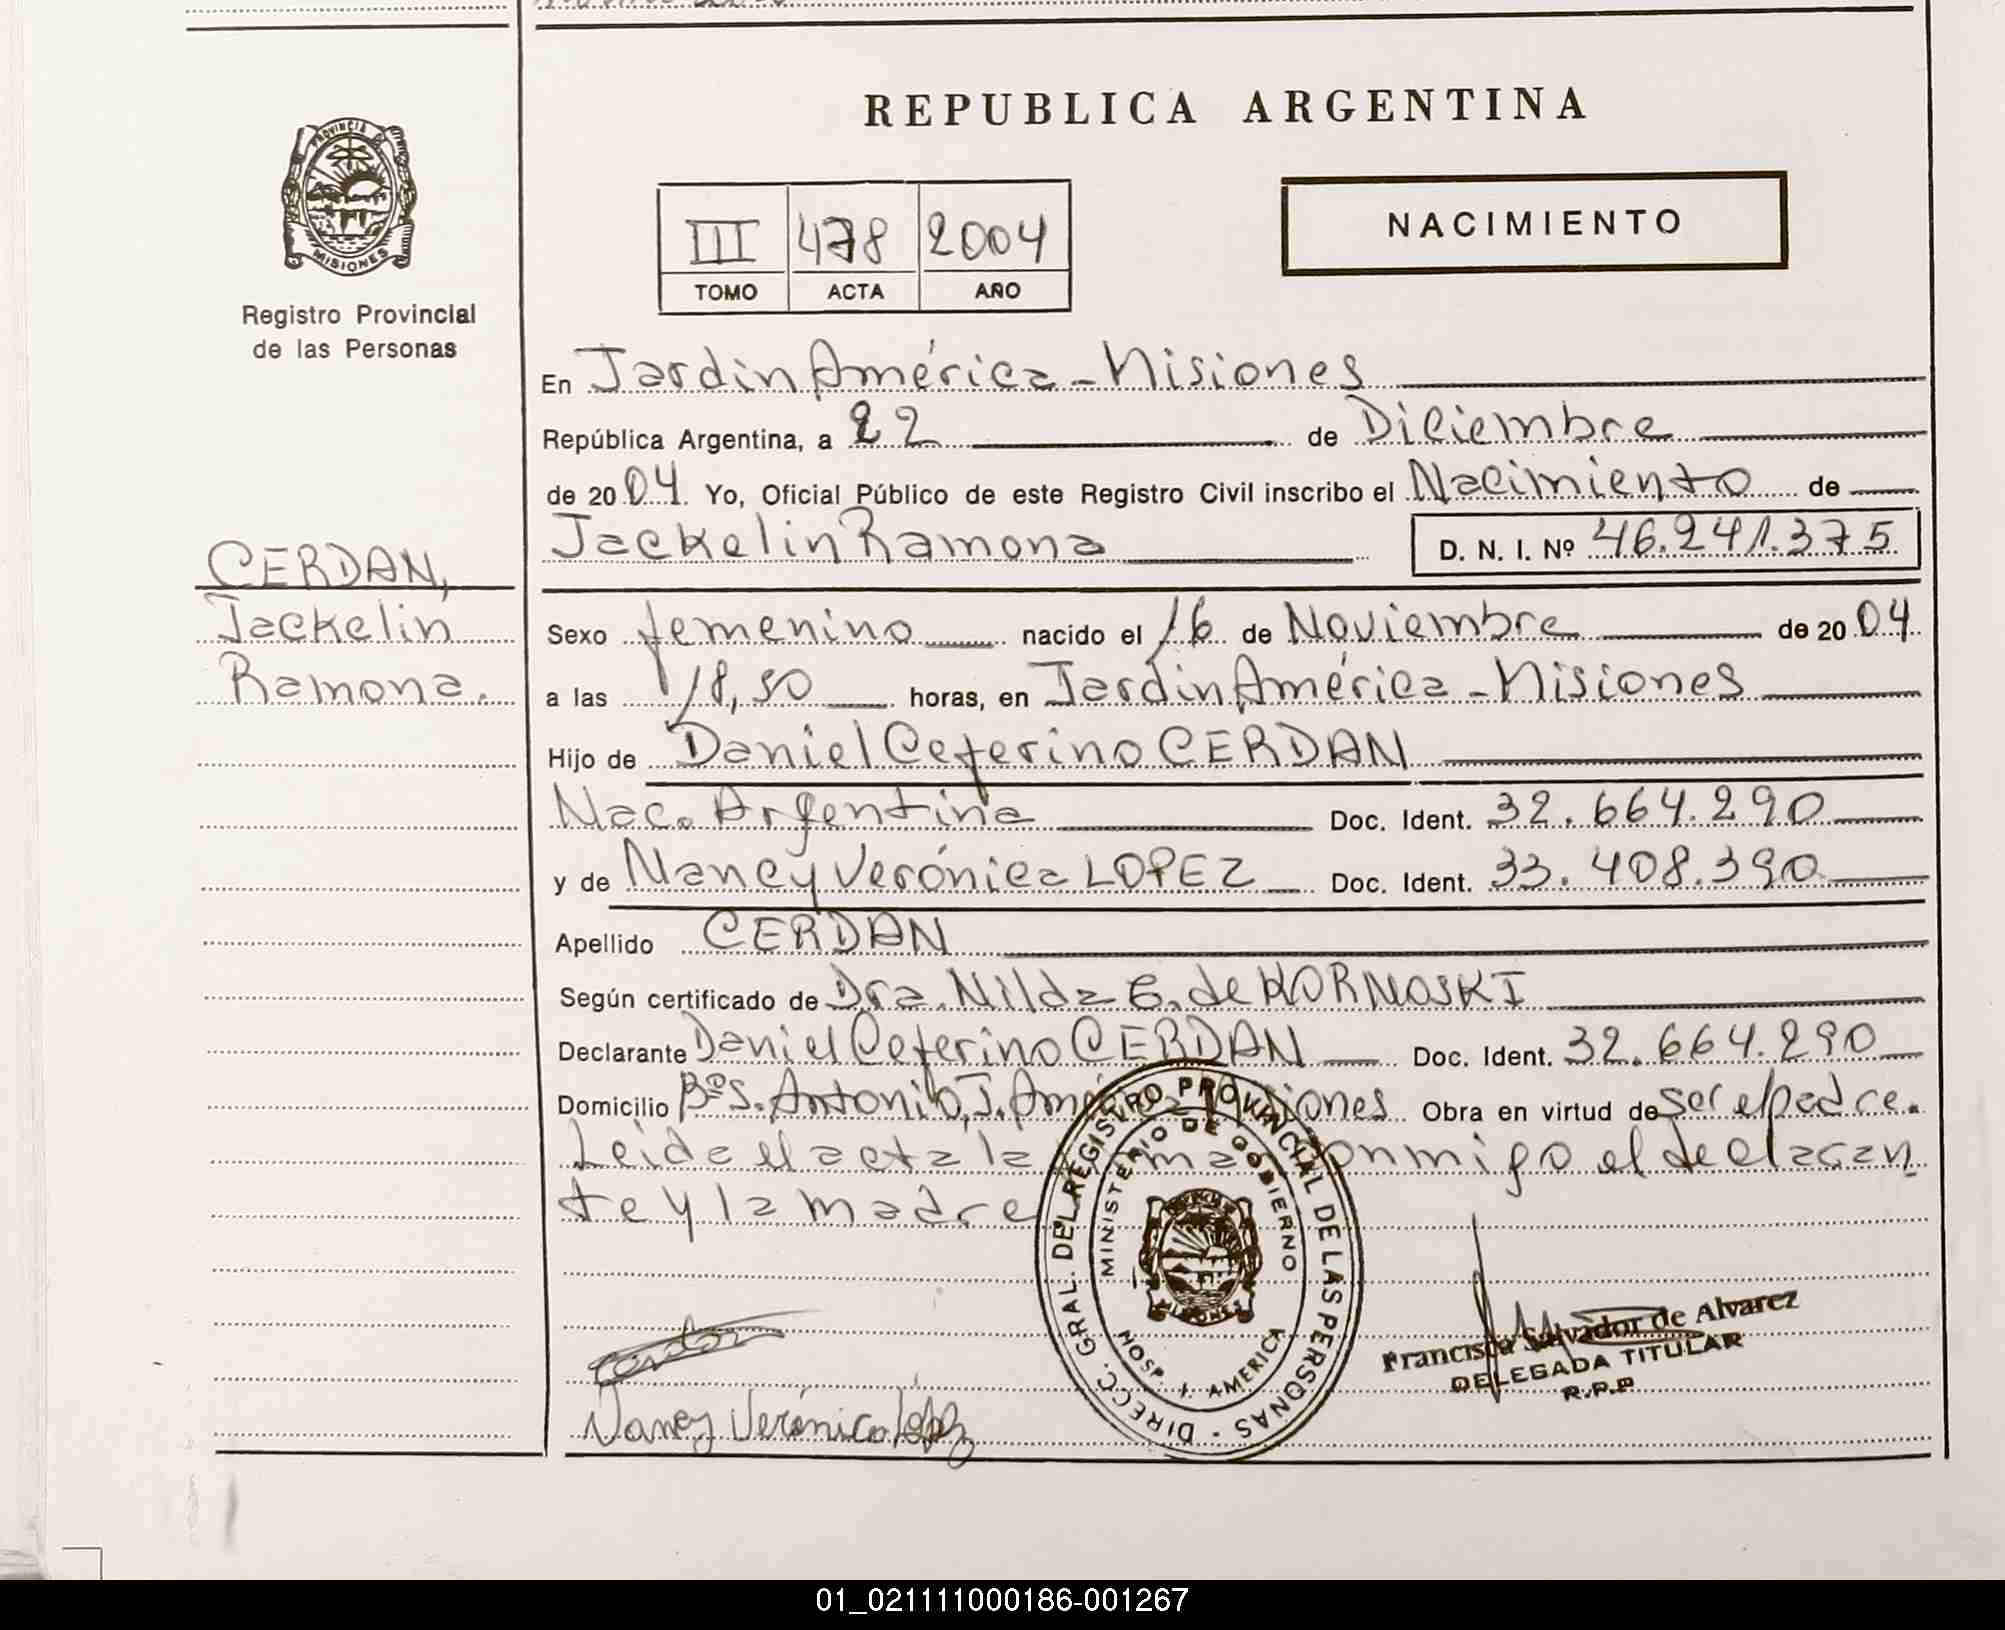 REPUBLICA ARGENTINA
PROVINCIA DE
MISIONES
Registro Provincial
de las Personas
III 478 2004
TOMO ACTA AÑO
NACIMIENTO
CERDAN,
Jackelin
Ramona.
En Jardin América - Misiones
República Argentina, a 22 de Diciembre
de 2004. Yo, Oficial Público de este Registro Civil inscribo el Nacimiento de
Jackelin Ramona D. N. I. Nº 46.241.375
Sexo femenino nacido el 16 de Noviembre de 2004
a las 18,50 horas, en Jardin América - Misiones
Hijo de Daniel Ceferino CERDAN
Nac. Argentina Doc. Ident. 32.664.290
y de Nancy Verónica LOPEZ Doc. Ident. 33.408.390
Apellido CERDAN
Según certificado de Dra. Nilda de KORNOSKI
Declarante Daniel Ceferino CERDAN Doc. Ident. 32.664.290
Domicilio Bº S. Antonio, J. América Misiones Obra en virtud de ser el padre.
Leida el acta la firma conmigo el declaran
te y la madre
DIRECC. GRAL. DEL REGISTRO PROVINCIAL DE LAS PERSONAS -
MINISTERIO DE GOBIERNO
MISIONES
HOSP. J. AMERICA
Francisca Salvador de Alvarez
DELEGADA TITULAR
R.P.P
Nancy Verónica López
01_021111000186-001267